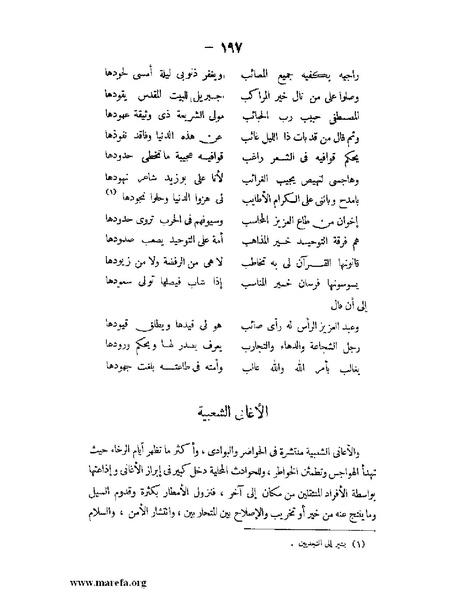 — ١٩٧ —
راجيه يكفيه جميع المصائب ويغفر ذنوبي ليلة أمسى لحودها
وصلوا على من نال خير المراكب جبريل للبيت المقدس يقودها
المصطفى حبيب رب الحبائب مولى الشريعة ذى وثيقة عهودها
وثم قال من قد بات ذا الليل غائب عن هذه الدنيا وفاقد نفوذها
يحكم قوافيه فى الشعر راغب قوافيه عجيبة ما تخطى حدودها
وهاجسي لنهيض يجيب الغرائب لأنا على بوزيد شاعر نهودها
بامدح وباثنى على الكرام الأطايب لى هزوا الدنيا وحلوا نجودها (١)
إخوان من طاع العزيز المحاسب وسيوفهم فى الحرب تروى حدودها
هم فرقة التوحيد خير المذاهب أمة على التوحيد يصعب صدودها
قانونها القرآن لى به تخاطب لا هى من الرفضة ولا من زيودها
يسوسونها فرسان خير المناسب إذا شاب فيصلها تولى سعودها
إلى أن قال
وعبد العزيز الرأس له رأى صائب هو لى قيدها ويطلق قيودها
رجل الشجاعة والدهاء والتجارب يعرف بصدر لها ويحكم ورودها
يغالب بأمر الله والله غالب وأمته فى طاعته بلغت جهودها
الأغانى الشعبية
والأغانى الشعبية منتشرة فى الحواضر والبوادى ، وأكثر ما تظهر أيام الرخاء حيث
تهدأ الهواجس وتطمئن الخواطر ، وللحوادث المحلية دخل كبير فى إبراز الأغانى وإذاعتها
بواسطة الأفراد المنتقلين من مكان إلى آخر ، فنزول الأمطار بكثرة وقدوم السيل
وما ينتج عنه من خير أو تخريب والإصلاح بين المتحاربين ، وانتشار الأمن ، والسلام
(١) يشير إلى النجديين .
www.marefa.org